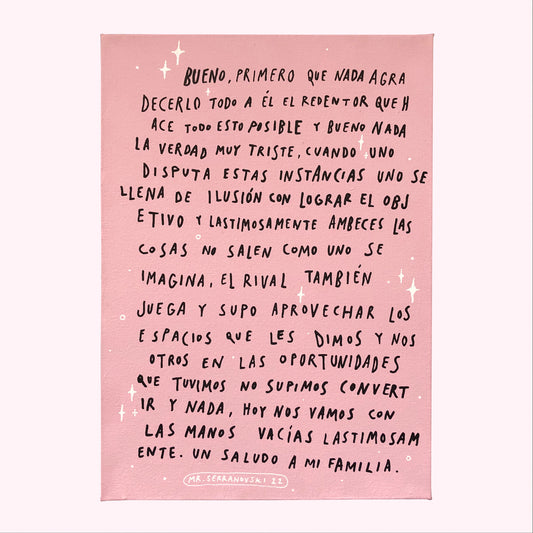 BUENO, PRIMERO QUE NADA AGRA
DECERLO TODO A ÉL EL REDENTOR QUE H
ACE TODO ESTO POSIBLE Y BUENO NADA
LA VERDAD MUY TRISTE, CUANDO UNO
DISPUTA ESTAS INSTÁNCIAS UNO SE
LLENA DE ILUSIÓN CON LOGRAR EL OBJ
ETIVO Y LASTIMOSAMENTE AMBECES LAS
COSAS NO SALEN COMO UNO SE
IMAGINA, EL RIVAL TAMBIÉN
JUEGA Y SUPO APROVECHAR LOS
ESPACIOS QUE LES DIMOS Y NOS
OTROS EN LAS OPORTUNIDADES
QUE TUVIMOS NO SUPIMOS CONVERT
IR Y NADA, HOY NOS VAMOS CON
LAS MANOS VACÍAS LASTIMOSAM
ENTE. UN SALUDO A MI FAMILIA.
MR. SERRANOVSKI 22